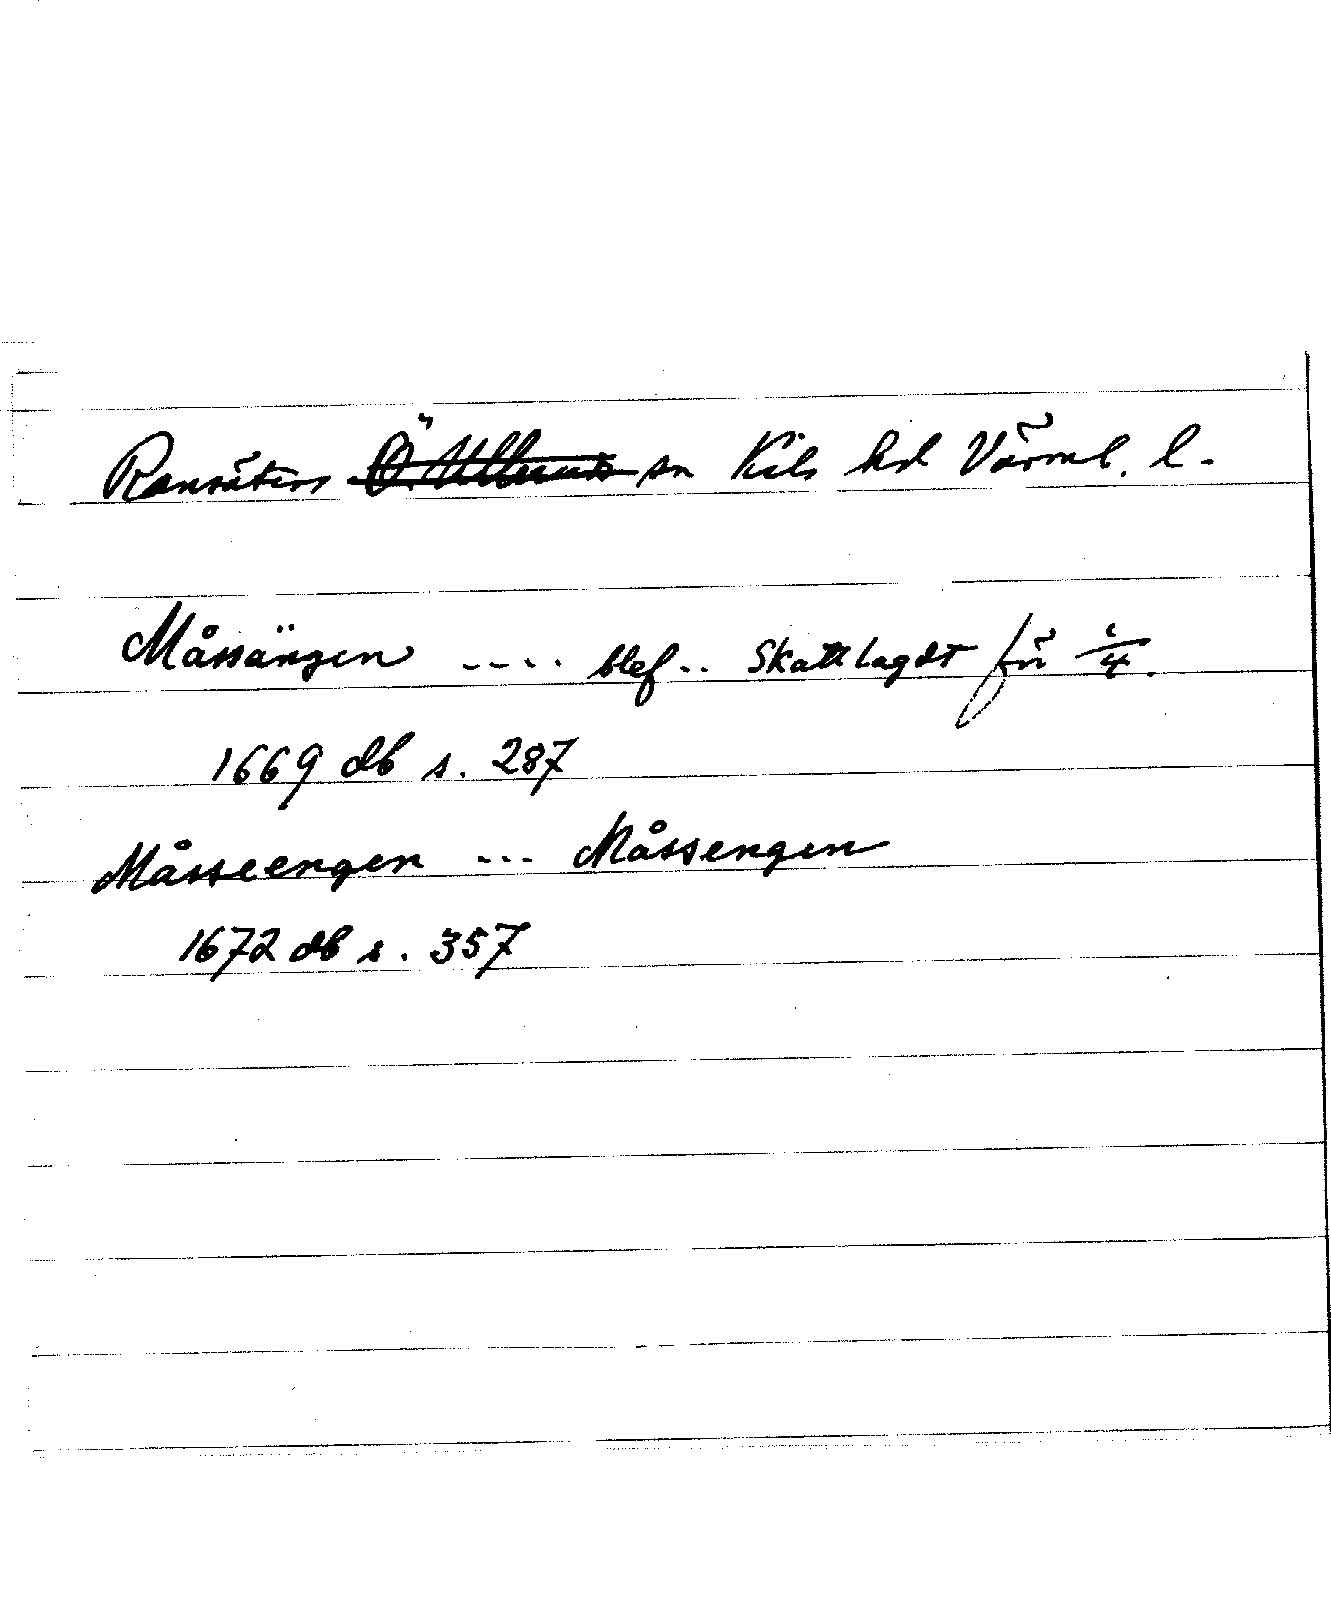 Ransäters Ö. Ulleruds sn Kils hd Värml. l.
Måssängen .... blef .. Skattlagdt för 1/4.
1669 db s. 287
Måsseengen ... Måssengen
1672 db s. 357